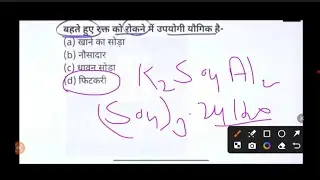 बहते हुए रक्त को रोकने में उपयोगी यौगिक है-
(a) खाने का सोड़ा
(b) नौसादार
(c) धावन सोड़ा
(d) फिटकरी
K₂So₄ Al₂
(So₄)₃.